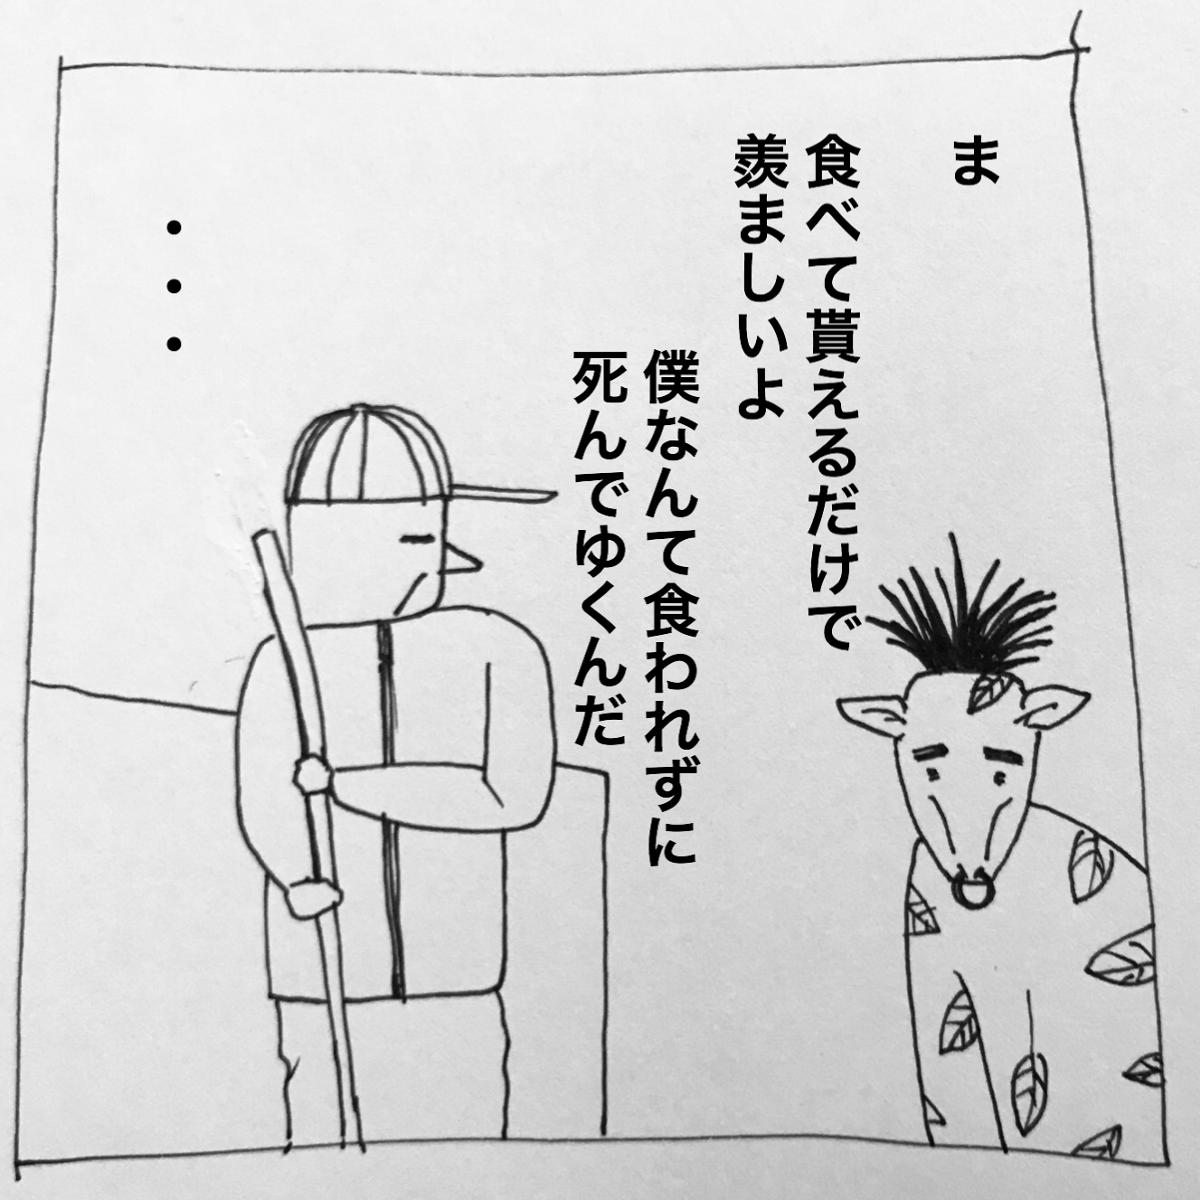 ま
食べて貰えるだけで
羨ましいよ
僕なんて食われずに
死んでゆくんだ
・・・